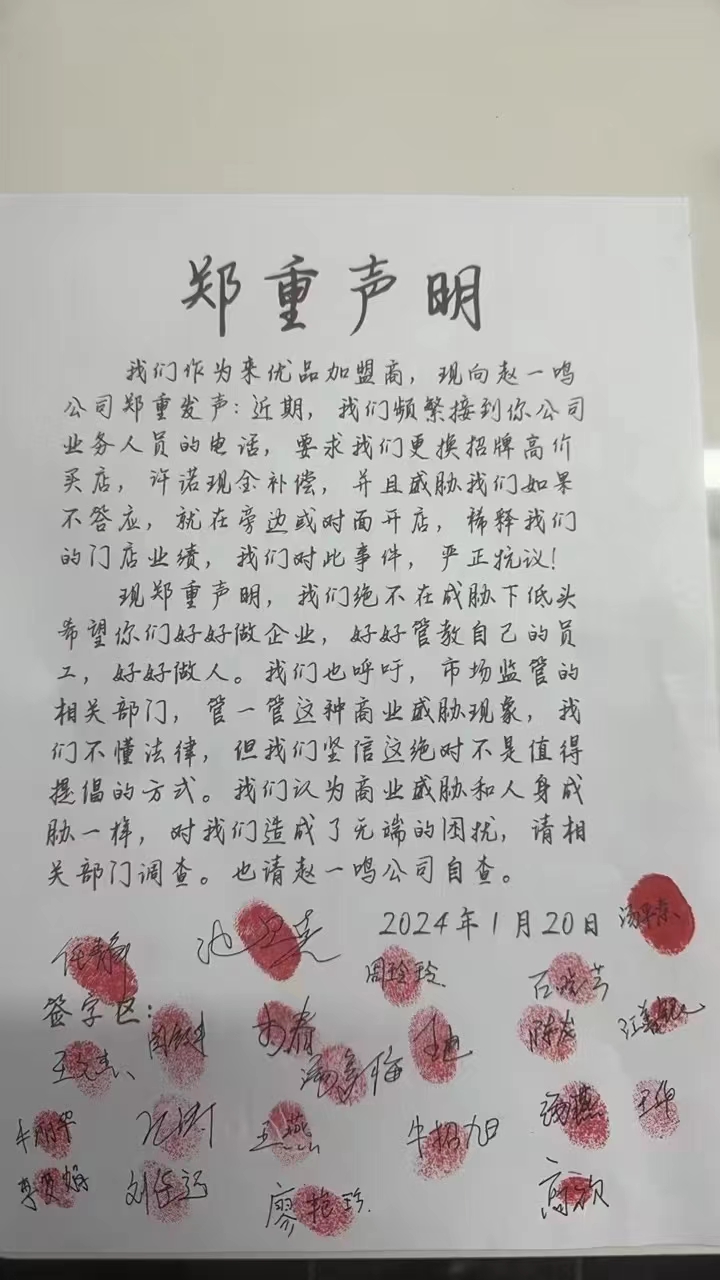 郑重声明
我们作为来优品加盟商，现向赵一鸣
公司郑重发声：近期，我们频繁接到你公司
业务人员的电话，要求我们更换招牌高价
买店，许诺现金补偿，并且威胁我们如果
不答应，就在旁边或对面开店，稀释我们
的门店业绩，我们对此事件，严正抗议！
现郑重声明，我们绝不在威胁下低头
希望你们好好做企业，好好管教自己的员
工，好好做人。我们也呼吁，市场监管的
相关部门，管一管这种商业威胁现象，我
们不懂法律，但我们坚信这绝对不是值得
提倡的方式。我们认为商业威胁和人身威
胁一样，对我们造成了无端的困扰，请相
关部门调查。也请赵一鸣公司自查。
2024年1月20日
任静
周玲玲
签字区：
王燕
廖艳珍